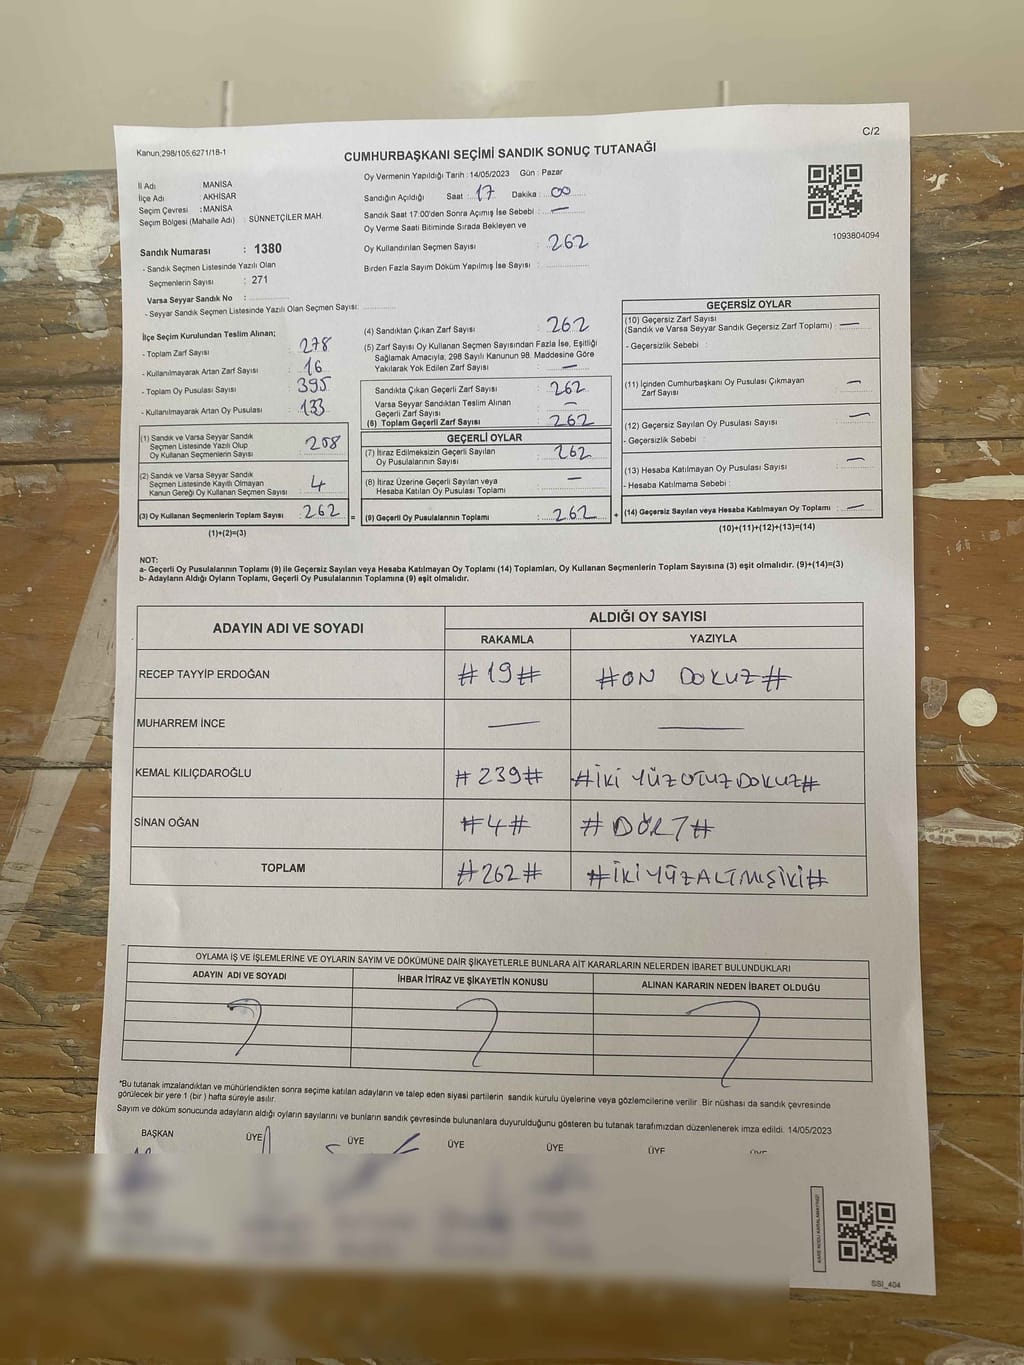 C/2
Kanun;298/105,6271/18-1
CUMHURBAŞKANI SEÇİMİ SANDIK SONUÇ TUTANAĞI
1093804094
İl Adı : MANİSA
İlçe Adı : AKHİSAR
Seçim Çevresi : MANİSA
Seçim Bölgesi (Mahalle Adı) : SÜNNETÇİLER MAH.
Sandık Numarası : 1380
- Sandık Seçmen Listesinde Yazılı Olan
Seçmenlerin Sayısı : 271
Varsa Seyyar Sandık No :
- Seyyar Sandık Seçmen Listesinde Yazılı Olan Seçmen Sayısı:
Oy Vermenin Yapıldığı Tarih : 14/05/2023 Gün : Pazar
Sandığın Açıldığı Saat : 17 Dakika : 00
Sandık Saat 17:00'den Sonra Açımış İse Sebebi : —
Oy Verme Saati Bitiminde Sırada Bekleyen ve
Oy Kullandırılan Seçmen Sayısı : 262
Birden Fazla Sayım Döküm Yapılmış İse Sayısı :
İlçe Seçim Kurulundan Teslim Alınan;
- Toplam Zarf Sayısı : 278
- Kullanılmayarak Artan Zarf Sayısı : 16
- Toplam Oy Pusulası Sayısı : 395
- Kullanılmayarak Artan Oy Pusulası : 133
(1) Sandık ve Varsa Seyyar Sandık
Seçmen Listesinde Yazılı Olup
Oy Kullanan Seçmenlerin Sayısı : 258
(2) Sandık ve Varsa Seyyar Sandık
Seçmen Listesinde Kayıtlı Olmayan
Kanun Gereği Oy Kullanan Seçmen Sayısı : 4
(3) Oy Kullanan Seçmenlerin Toplam Sayısı : 262 =
(1)+(2)=(3)
(4) Sandıktan Çıkan Zarf Sayısı : 262
(5) Zarf Sayısı Oy Kullanan Seçmen Sayısından Fazla İse, Eşitliği
Sağlamak Amacıyla, 298 Sayılı Kanunun 98. Maddesine Göre
Yakılarak Yok Edilen Zarf Sayısı : —
Sandıkta Çıkan Geçerli Zarf Sayısı : 262
Varsa Seyyar Sandıktan Teslim Alınan
Geçerli Zarf Sayısı : —
(6) Toplam Geçerli Zarf Sayısı : 262
GEÇERLİ OYLAR
(7) İtiraz Edilmeksizin Geçerli Sayılan
Oy Pusulalarının Sayısı : 262
(8) İtiraz Üzerine Geçerli Sayılan veya
Hesaba Katılan Oy Pusulası Toplamı : —
(9) Geçerli Oy Pusulalarının Toplamı : 262 +
GEÇERSİZ OYLAR
(10) Geçersiz Zarf Sayısı
(Sandık ve Varsa Seyyar Sandık Geçersiz Zarf Toplamı) : —
- Geçersizlik Sebebi :
(11) İçinden Cumhurbaşkanı Oy Pusulası Çıkmayan
Zarf Sayısı : —
(12) Geçersiz Sayılan Oy Pusulası Sayısı : —
- Geçersizlik Sebebi :
(13) Hesaba Katılmayan Oy Pusulası Sayısı : —
- Hesaba Katılmama Sebebi :
(14) Geçersiz Sayılan veya Hesaba Katılmayan Oy Toplamı : —
(10)+(11)+(12)+(13)=(14)
NOT:
a- Geçerli Oy Pusulalarının Toplamı (9) ile Geçersiz Sayılan veya Hesaba Katılmayan Oy Toplamı (14) Toplamları, Oy Kullanan Seçmenlerin Toplam Sayısına (3) eşit olmalıdır. (9)+(14)=(3)
b- Adayların Aldığı Oyların Toplamı, Geçerli Oy Pusulalarının Toplamına (9) eşit olmalıdır.
ADAYIN ADI VE SOYADI ALDIĞI OY SAYISI
RAKAMLA YAZIYLA
RECEP TAYYİP ERDOĞAN #19# #ON DOKUZ#
MUHARREM İNCE — —
KEMAL KILIÇDAROĞLU #239# #İKİ YÜZ OTUZ DOKUZ#
SİNAN OĞAN #4# #DÖRT#
TOPLAM #262# #İKİ YÜZ ALTMIŞ İKİ#
OYLAMA İŞ VE İŞLEMLERİNE VE OYLARIN SAYIM VE DÖKÜMÜNE DAİR ŞİKAYETLERLE BUNLARA AİT KARARLARIN NELERDEN İBARET BULUNDUKLARI
ADAYIN ADI VE SOYADI İHBAR İTİRAZ VE ŞİKAYETİN KONUSU ALINAN KARARIN NEDEN İBARET OLDUĞU
*Bu tutanak imzalandıktan ve mühürlendikten sonra seçime katılan adayların ve talep eden siyasi partilerin sandık kurulu üyelerine veya gözlemcilerine verilir. Bir nüshası da sandık çevresinde
görülecek bir yere 1 (bir) hafta süreyle asılır.
Sayım ve döküm sonucunda adayların aldığı oyların sayılarını ve bunların sandık çevresinde bulunanlara duyurulduğunu gösteren bu tutanak tarafımızdan düzenlenerek imza edildi. 14/05/2023
BAŞKAN ÜYE ÜYE ÜYE ÜYE ÜYE ÜYE
SSI_404